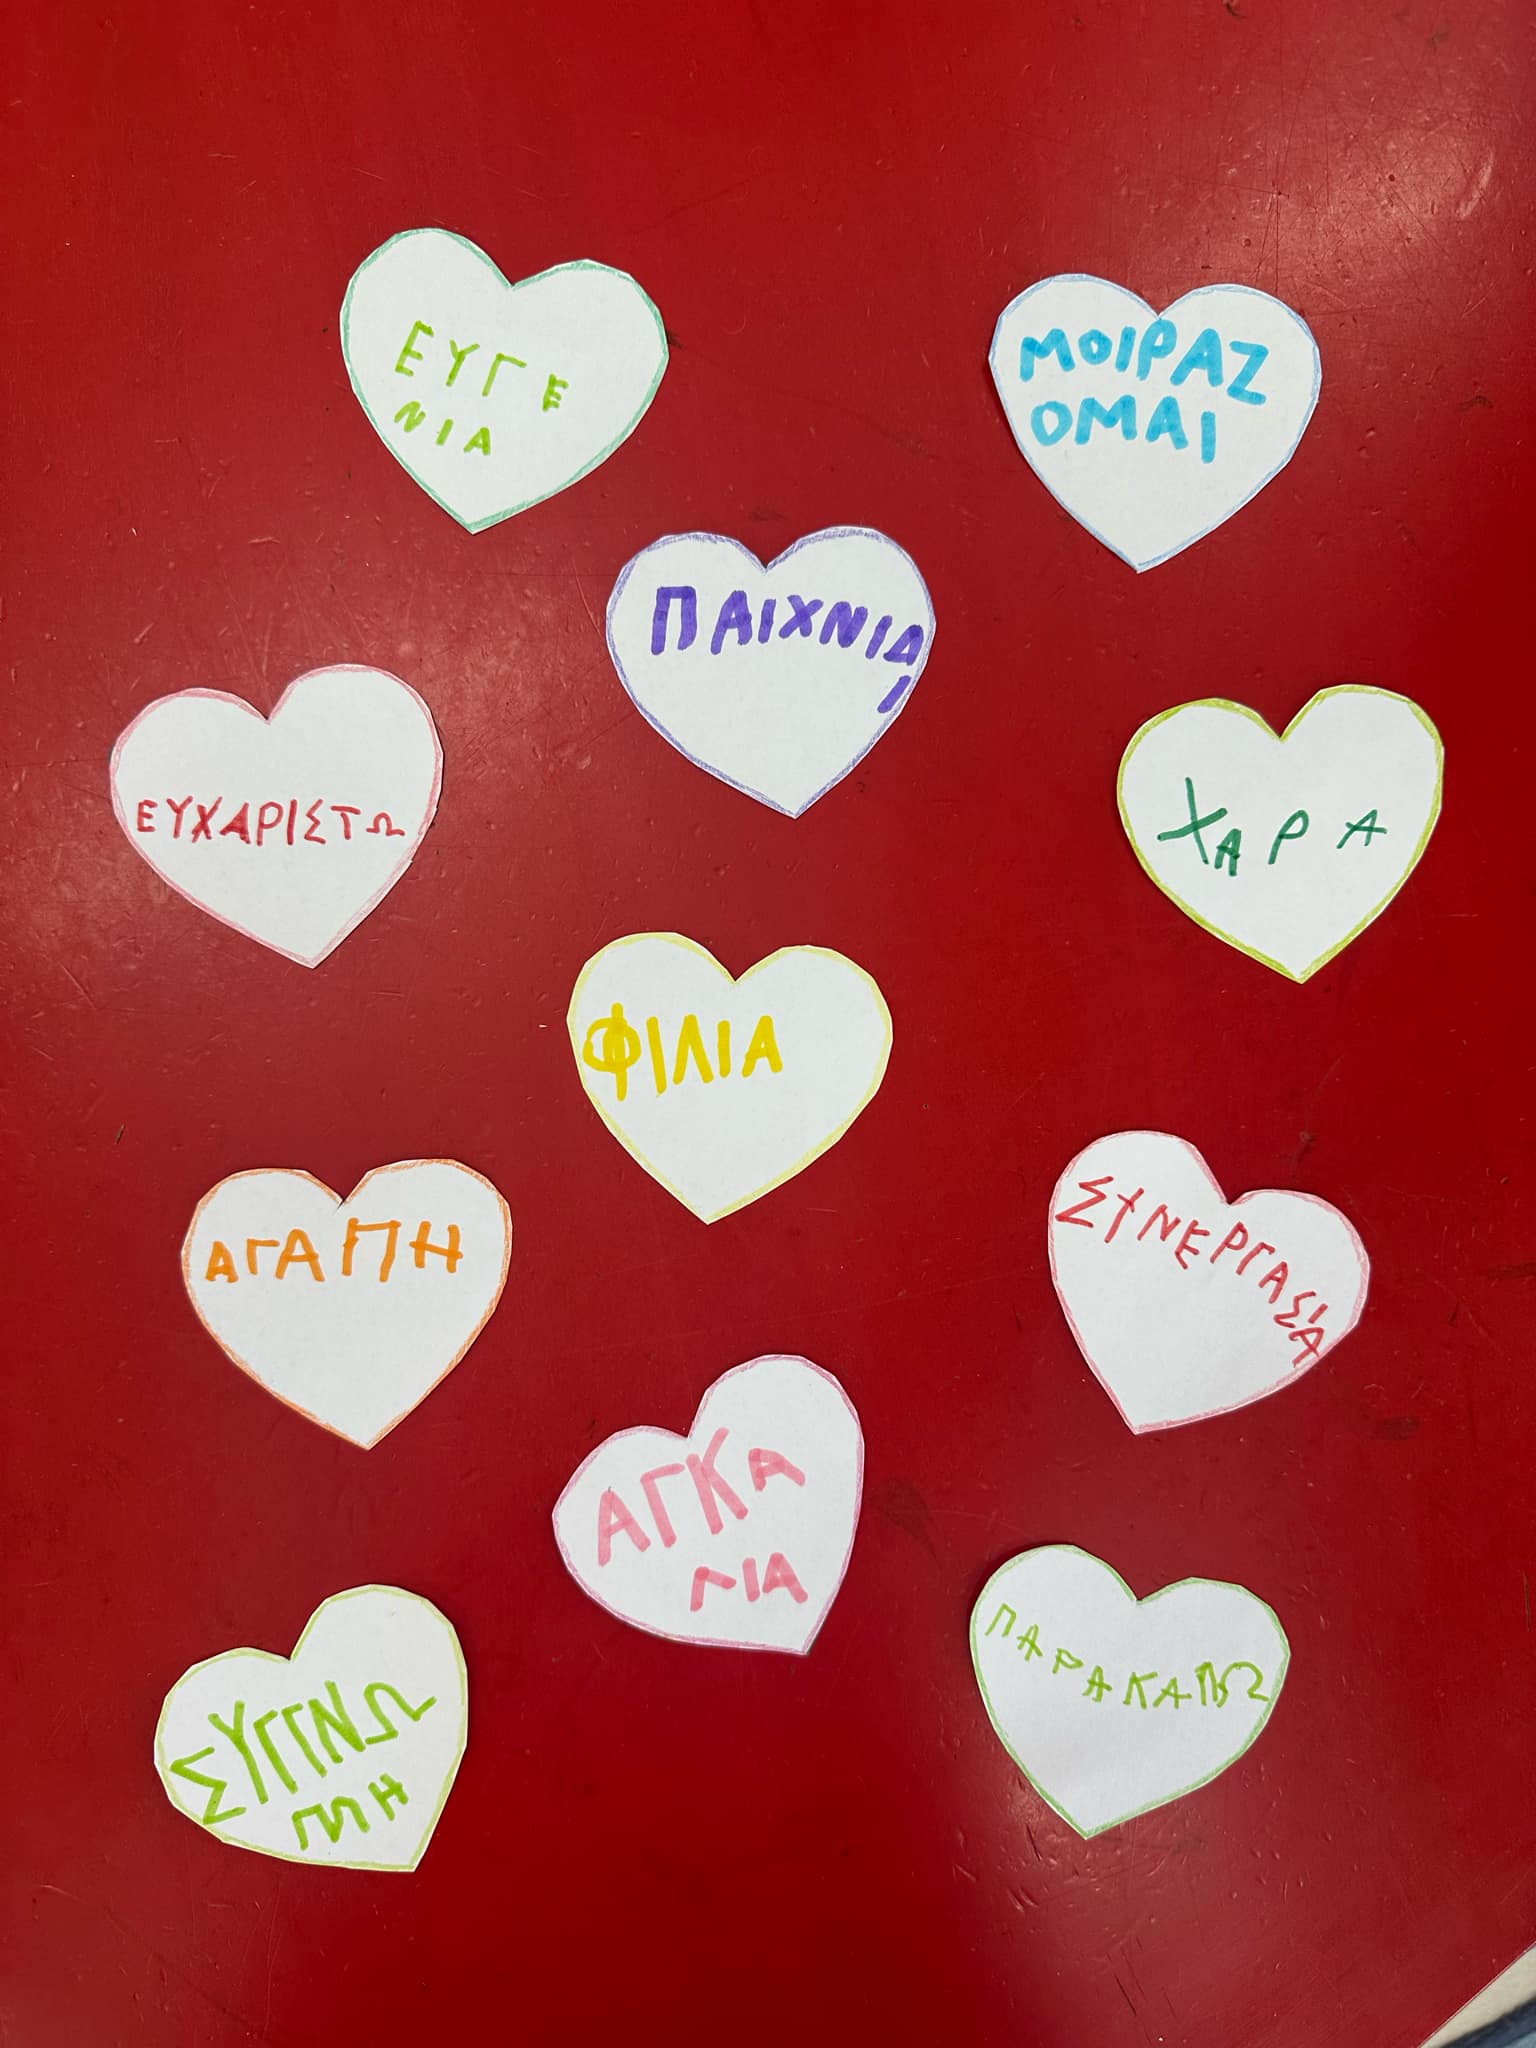 ΕΥΓΕ
ΝΙΑ
ΜΟΙΡΑΖ
ΟΜΑΙ
ΠΑΙΧΝΙΔ
Ι
ΕΥΧΑΡΙΣΤΩ
ΧΑΡΑ
ΦΙΛΙΑ
ΑΓΑΠΗ
ΣΥΝΕΡΓΑΣΙΑ
ΑΓΚΑ
ΛΙΑ
ΣΥΓΓΝΩ
ΜΗ
ΠΑΡΑΚΑΛΩ